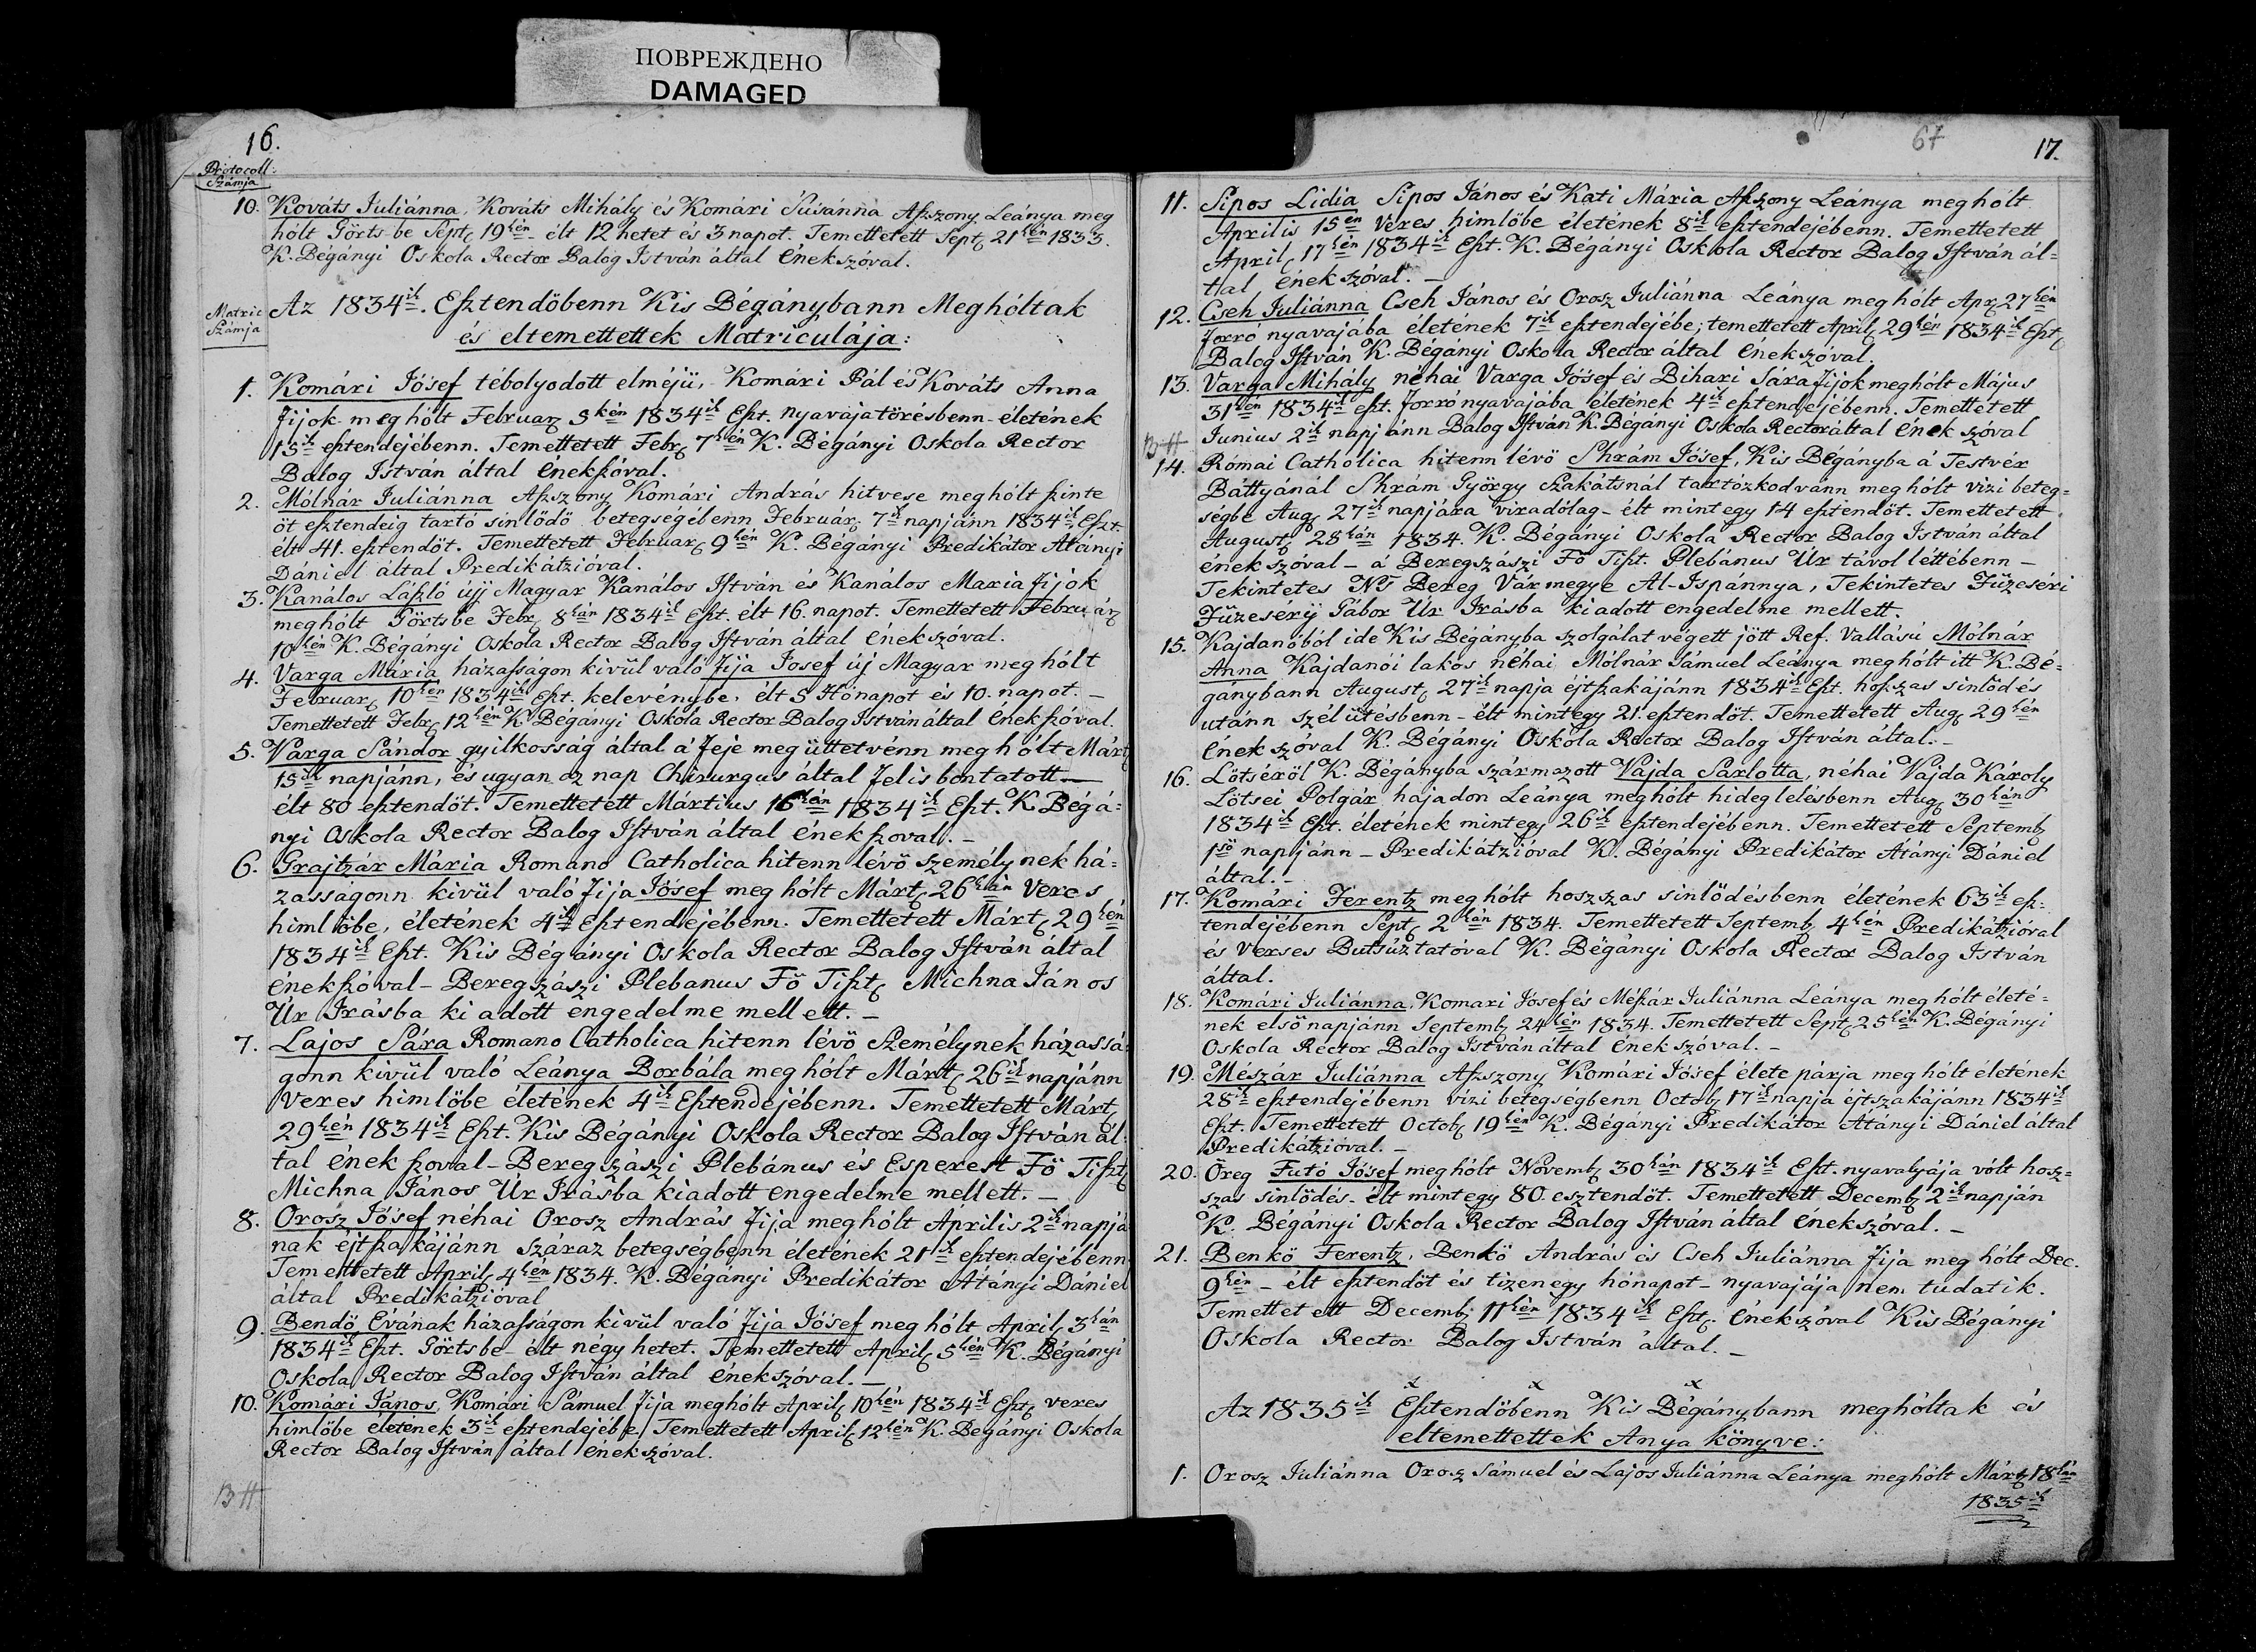 ПОВРЕЖДЕНО
DAMAGED
16.
Protocoll:
Számja
10. Kováts Juliánna, Kováts Mihály és Komári Susánna Aſszony Leánya meg
hólt Görts be Sept. 19kén - élt 12 hetet és 3 napot. Temettetett Sept. 21kén 1833.
K. Bégányi Oskola Rector Balog István által Énekszóval.
Matric
Számja
Az 1834ik. Eſztendöbenn Kis Bégánybann Meghóltak
és eltemettettek Matriculája:
1. Komári Jósef tébolyodott elméjü, Komári Pál és Kováts Anna
fijok meghólt Februar. 5kén 1834ik Eſzt. nyavajatörésbenn életének
15ik eſztendejébenn. Temettetett Febr. 7kén K. Bégányi Oskola Rector
Balog István által Énekſzóval.
2. Mólnár Juliánna Aſszony Komári András hitvese meghólt ſzinte
öt eſztendeig tartó sinlödö betegségébenn Február. 7ik napjánn 1834ik Eſzt.
élt 41. eſztendöt. Temettetett Februar. 9kén K. Bégányi Predikátor Átányi
Dániel által Predikátzióval.
3. Kanálos László újj Magyar Kanálos Iſtván és Kanálos Maria fijok
meghólt Görtsbe Febr. 8kán 1834ik Eſzt. élt 16. napot. Temettetett Február.
10kén K. Bégányi Oskola Rector Balog Iſtván által Énekszóval.
4. Varga Mária házaſságon kivül való fija Josef új Magyar meghólt
Februar. 10kén 1834ik Eſzt. kelevénybe, élt 5 Hónapot és 10. napot. -
Temettetett Febr. 12kén K. Bégányi Oskola Rector Balog István által Énekſzóval.
5. Varga Sándor gyilkosság által á feje megüttetvénn meghólt Márt.
15ik napjánn, és ugyan az nap Chirurgus által felis bontatott -
élt 80 eſztendöt. Temettetett Mártius 16kán 1834ik Eſzt. K. Bégá=
nyi Oskola Rector Balog Iſtván által Énekſzoval. -
6. Grajtzár Mária Romano Catholica hitenn lévö személynek há=
zasságonn kivül való fija Jósef meg hólt Márt. 26kán Veres
himlöbe, életének 4ik Eſztendejébenn. Temettetett Márt. 29kén
1834ik Eſzt. Kis Bégányi Oskola Rector Balog Iſtván által
énekſzóval - Beregszászi Plebanus Fö Tiſzt. Michna János
Úr Irásba ki adott engedelme mellett. -
7. Lajos Sára Romano Catholica hitenn lévö Személynek házassá=
gonn kivül való Leánya Borbála meghólt Márt. 26ik napjánn
Veres himlöbe életének 4ik Eſztendejébenn. Temettetett Márt.
29kén 1834ik Eſzt. Kis Bégányi Oskola Rector Balog Iſtván ál=
tal ének ſzoval - Beregszászi Plebánus és Esperest Fö Tiſzt.
Michna János Úr Irásba kiadott engedelme mellett. -
8. Orosz Jósef néhai Orosz András fija meghólt Április 2ik napjá
nak éjtſzakájánn száraz betegségbenn életének 21ik eſztendejébenn
Temettetett April. 4kén 1834. K. Bégányi Predikátor Átányi Dániel
által Predikátzióval
9. Bendö Évának házaſságon kivül való fija Jósef meg hólt April. 3kán
1834ik Eſzt. Görtsbe - élt négy hetet. Temettetett April. 5kén K. Bégányi
Oskola Rector Balog Iſtván által énekszóval. -
10. Komári János, Komári Sámuel fija meghólt April. 10kén 1834ik Eſzt. veres
himlöbe életének 3ik eſztendejébe. Temettetett April. 12kén K. Begányi Oskola
Rector Balog Iſtván által énekszóval.
67
17.
11. Sipos Lidia Sipos János és Kati Mária Aſszony Leánya meghólt
Aprilis 15én Veres himlöbe életének 8ik eſztendejébenn. Temettetett
April. 17kén 1834ik Eſzt. K. Bégányi Oskola Rector Balog Iſtván ál=
tal énekszóval. -
12. Cseh Juliánna Cseh János és Orosz Juliánna Leánya meghólt Apr. 27kén
forró nyavajába életének 7ik eſztendejébe; temettetett April. 29kén 1834ik Eſzt.
Balog Iſtván K. Bégányi Oskola Rector által Énekszóval.
13. Varga Mihály néhai Varga Jósef és Bihari Sára fijok meghólt Május
31kén 1834ik eſzt. forró nyavajába életének 4ik eſztendejébenn. Temettetett
Junius 2ik napjánn Balog Iſtván K. Bégányi Oskola Rector által Ének szóval
14. Római Catholica hitenn lévö Shrám Jósef, Kis Bégányba á Testvér
Báttyánál Shrám György Szakátsnál tartózkodvánn meghólt vizi beteg=
ségbe Aug. 27ik napjára viradólag - élt mintegy 14 eſztendöt. Temettetett
August. 28kán 1834. K. Bégányi Oskola Rector Balog István által
énekszóval - á Beregszászi Fö Tiſzt. Plebánus Úr távol léttébenn -
Tekintetes Ns Bereg Vármegye Al-Ispánnya, Tekintetes Füzeséri
Füzeséry Gábor Úr Irásba kiadott engedelme mellett.
15. Kajdanóból ide Kis Bégányba szolgálat végett jött Ref. Vallású Mólnár
Anna Kajdanói lakos néhai Mólnár Sámuel Leánya meghólt itt K. Bé=
gánybann August. 27ik napja éjtſzakájánn 1834ik Eſzt. hoſszas sinlödés
utánn szélütésbenn - élt mintegy 21. eſztendöt. Temettetett Aug. 29kén
Énekszóval K. Bégányi Oskola Rector Balog Iſtván által. -
16. Lötséröl K. Bégányba származott Vajda Sarlotta, néhai Vajda Károly
Lötsei Polgár hajadon Leánya meghólt hideglelésbenn Aug. 30kán
1834ik Eſzt. életének mintegy 26ik eſztendejébenn. Temettetett Septemb.
1sö napjánn - Predikátzióval K. Bégányi Predikátor Átányi Dániel
által. -
17. Komári Ferentz meghólt hoszszas sinlödésbenn életének 63ik eſz=
tendejébenn Sept. 2kán 1834. Temettetett Septemb. 4kén Predikátzióval
és Verses Butsúztatóval K. Bégányi Oskola Rector Balog István
által.
18. Komári Juliánna, Komari Jósef és Méſzár Juliánna Leánya meghólt életé=
nek elsö napjánn Septemb. 24kén 1834. Temettetett Sept. 25kén K. Bégányi
Oskola Rector Balog István által Énekszóval. -
19. Mészár Juliánna Aſszony Komári Jósef élete párja meghólt életének
28ik eſztendejébenn vizi betegségbenn Octob. 17ik napja éjtszakájánn 1834ik
Eſzt. Temettetett Octob. 19kén K. Bégányi Predikátor Átányi Dániel által
Predikátzióval. -
20. Öreg Futó Jósef meghólt Novemb. 30kán 1834ik Eſzt. nyavalyája vólt hosz=
szas sinlödés - élt mintegy 80. esztendöt. Temettetett Decemb. 2ik napján
K. Bégányi Oskola Rector Balog Iſtván által Énekszóval. -
21. Benkö Ferentz, Benkö András és Cseh Juliánna fija meg hólt Dec.
9kén - élt eſztendöt és tizenegy hónapot - nyavajája nem tudatik.
Temettetett Decemb. 11kén 1834ik Eſzt. Énekszóval Kis Bégányi
Oskola Rector Balog István által. -
Az 1835ik Eſztendöbenn Kis Bégánybann meghóltak és
eltemettettek Anya könyve:
1. Orosz Juliánna Orosz Sámuel és Lajos Juliánna Leánya meghólt Márt. 18kán
1835ik